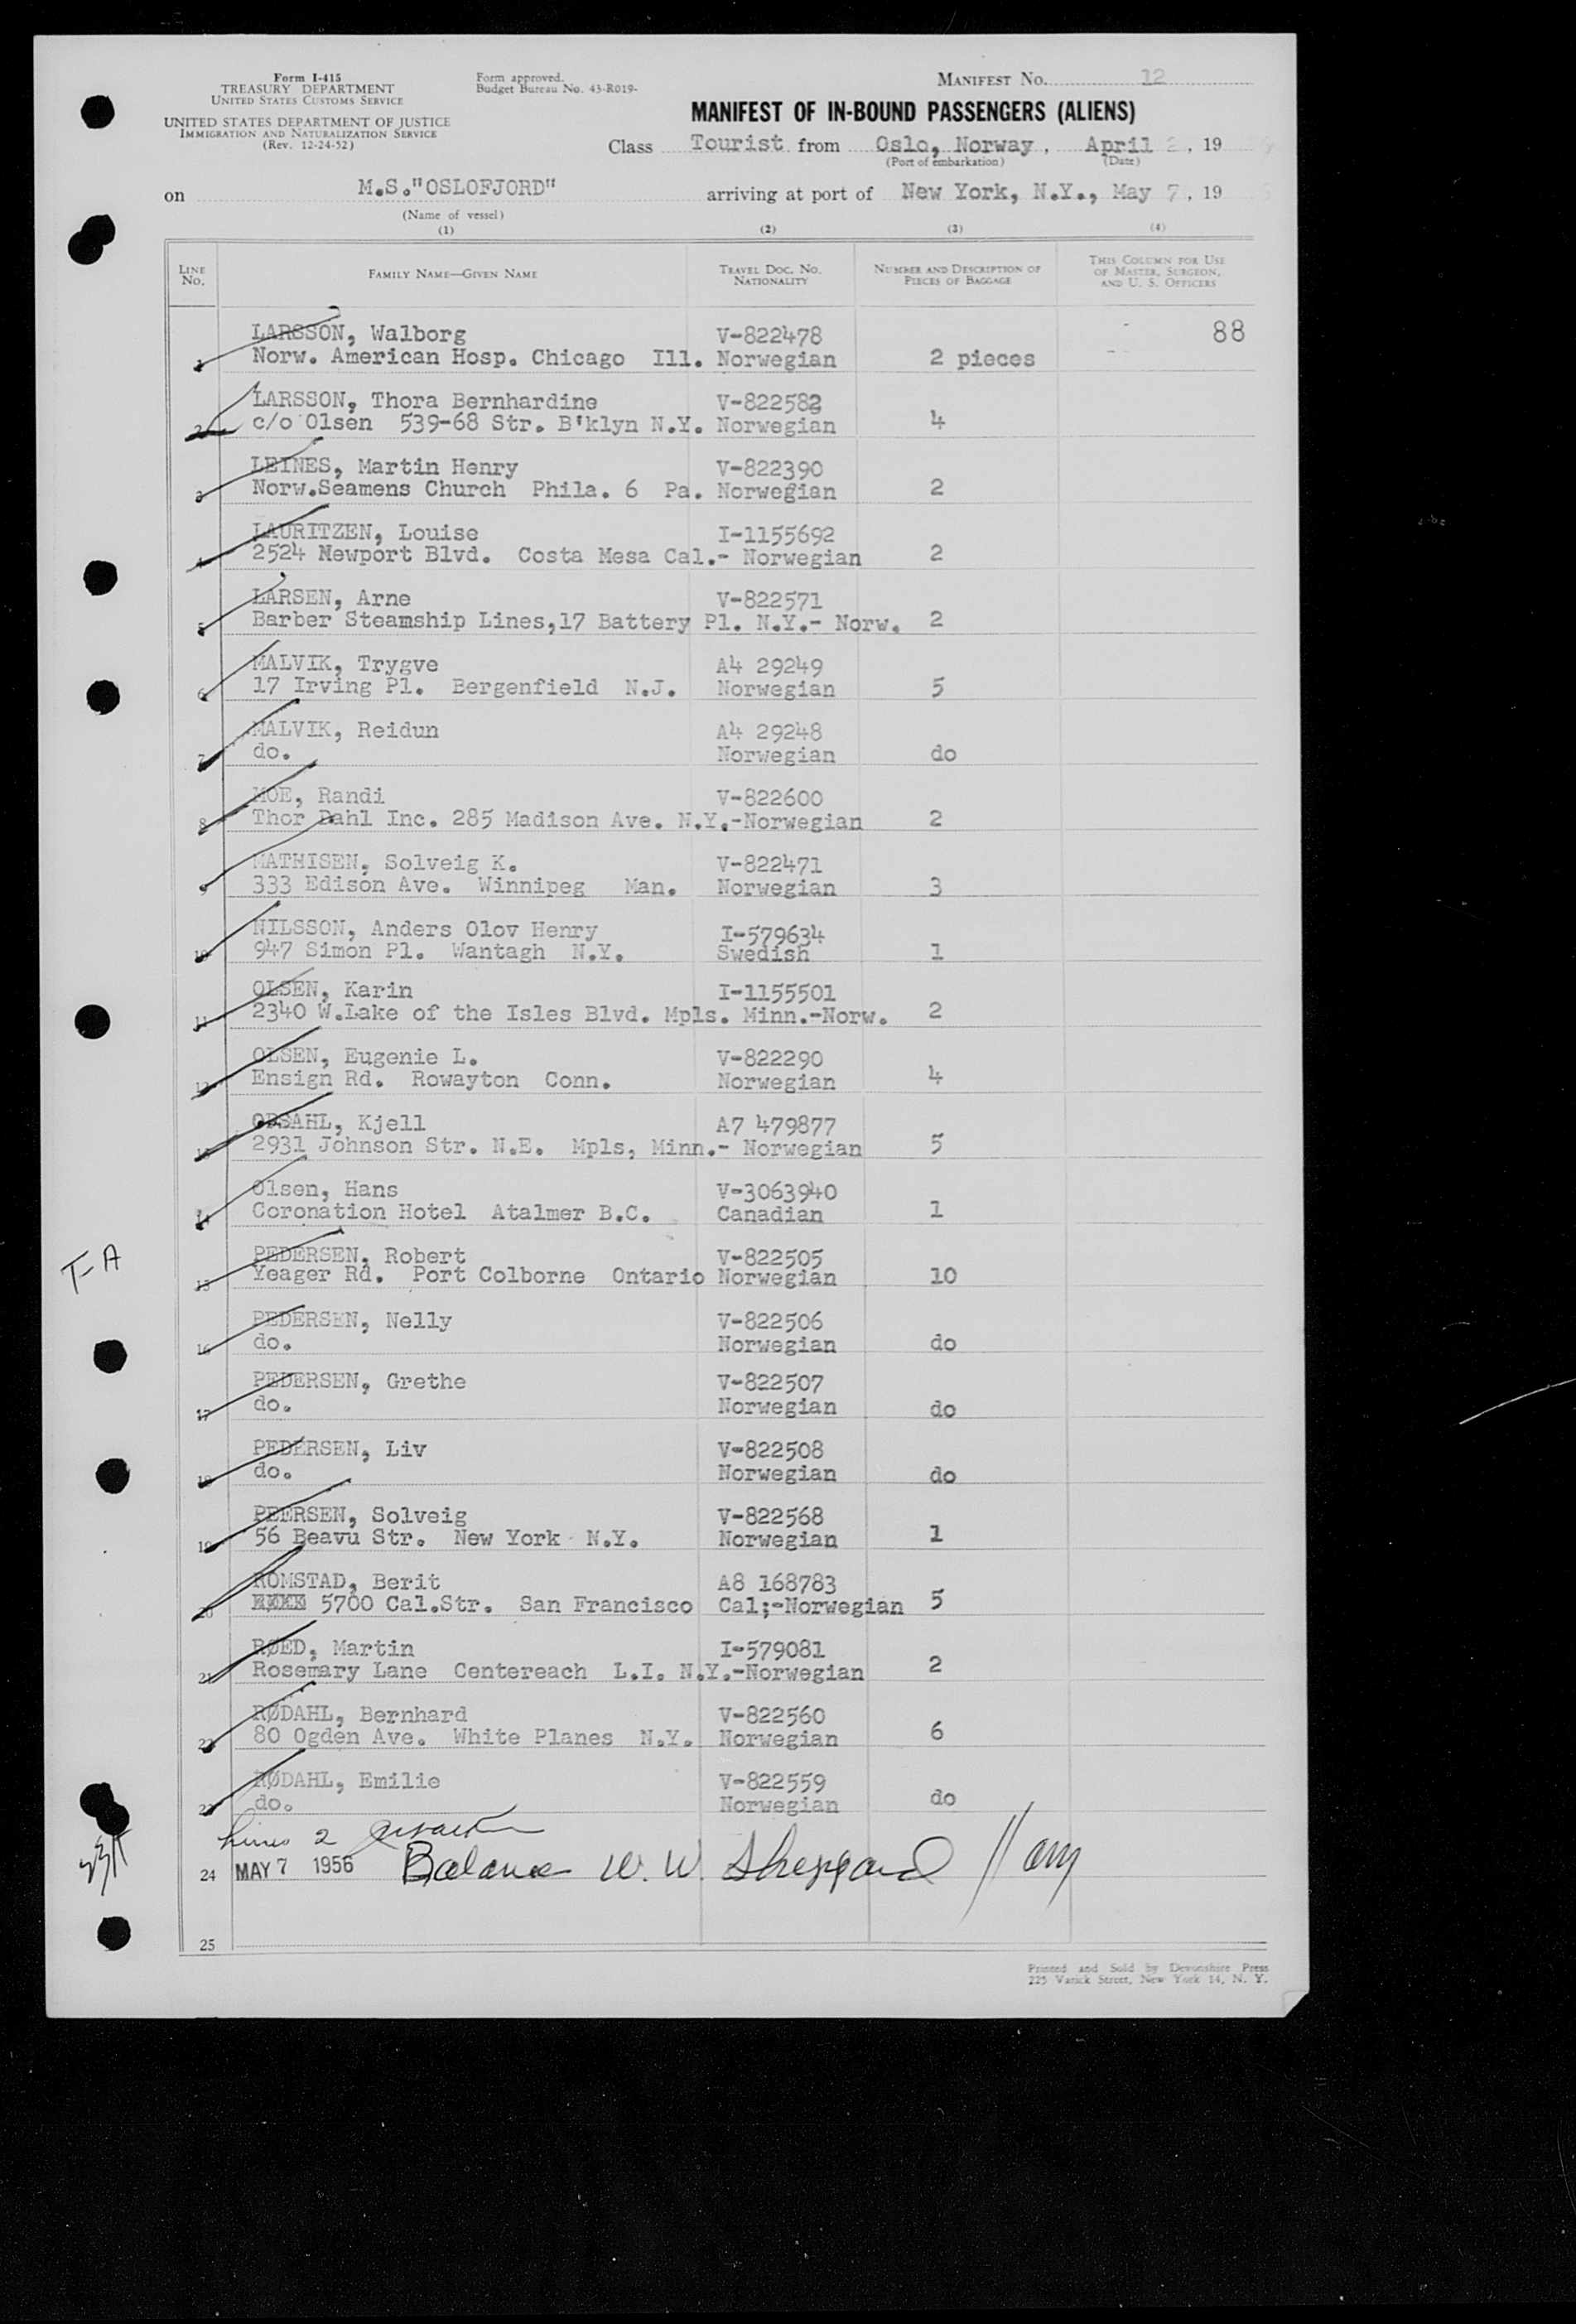 Form I-415
TREASURY DEPARTMENT
UNITED STATES CUSTOMS SERVICE
UNITED STATES DEPARTMENT OF JUSTICE
IMMIGRATION AND NATURALIZATION SERVICE
(Rev. 12-24-52)
Form approved.
Budget Bureau No. 43-R019-
MANIFEST No. 12
MANIFEST OF IN-BOUND PASSENGERS (ALIENS)
Class Tourist from Oslo, Norway, April 2, 19
(Port of embarkation) (Date)
on M.S."OSLOFJORD" arriving at port of New York, N.Y., May 7, 19
(Name of vessel)
(1) (2) (3) (4)
LINE No. FAMILY NAME—GIVEN NAME TRAVEL DOC. NO. NATIONALITY NUMBER AND DESCRIPTION OF PIECES OF BAGGAGE THIS COLUMN FOR USE OF MASTER, SURGEON, AND U. S. OFFICERS
LARSSON, Walborg V-822478 88
1 Norw. American Hosp. Chicago Ill. Norwegian 2 pieces
LARSSON, Thora Bernhardine V-822582
2 c/o Olsen 539-68 Str. B'klyn N.Y. Norwegian 4
LEINES, Martin Henry V-822390
3 Norw.Seamens Church Phila. 6 Pa. Norwegian 2
LAURITZEN, Louise I-1155692
4 2524 Newport Blvd. Costa Mesa Cal.- Norwegian 2
LARSEN, Arne V-822571
5 Barber Steamship Lines,17 Battery Pl. N.Y.- Norw. 2
MALVIK, Trygve A4 29249
6 17 Irving Pl. Bergenfield N.J. Norwegian 5
MALVIK, Reidun A4 29248
7 do. Norwegian do
MOE, Randi V-822600
8 Thor Dahl Inc. 285 Madison Ave. N.Y.-Norwegian 2
MATHISEN, Solveig K. V-822471
9 333 Edison Ave. Winnipeg Man. Norwegian 3
NILSSON, Anders Olov Henry I-579634
10 947 Simon Pl. Wantagh N.Y. Swedish 1
OLSEN, Karin I-1155501
11 2340 W.Lake of the Isles Blvd. Mpls. Minn.-Norw. 2
OLSEN, Eugenie L. V-822290
12 Ensign Rd. Rowayton Conn. Norwegian 4
ODSAHL, Kjell A7 479877
13 2931 Johnson Str. N.E. Mpls, Minn.- Norwegian 5
Olsen, Hans V-3063940
14 Coronation Hotel Atalmer B.C. Canadian 1
T-A
PEDERSEN, Robert V-822505
15 Yeager Rd. Port Colborne Ontario Norwegian 10
PEDERSEN, Nelly V-822506
16 do. Norwegian do
PEDERSEN, Grethe V-822507
17 do. Norwegian do
PEDERSEN, Liv V-822508
18 do. Norwegian do
PEERSEN, Solveig V-822568
19 56 Beavu Str. New York N.Y. Norwegian 1
ROMSTAD, Berit A8 168783
20 5700 Cal.Str. San Francisco Cal;-Norwegian 5
RØED, Martin I-579081
21 Rosemary Lane Centereach L.I. N.Y.-Norwegian 2
RØDAHL, Bernhard V-822560
22 80 Ogden Ave. White Planes N.Y. Norwegian 6
RØDAHL, Emilie V-822559
23 do. Norwegian do
Lines 2
24 MAY 7 1956 Balance W. W. Sheppard
25
Printed and Sold by Devonshire Press
225 Varick Street, New York 14, N. Y.